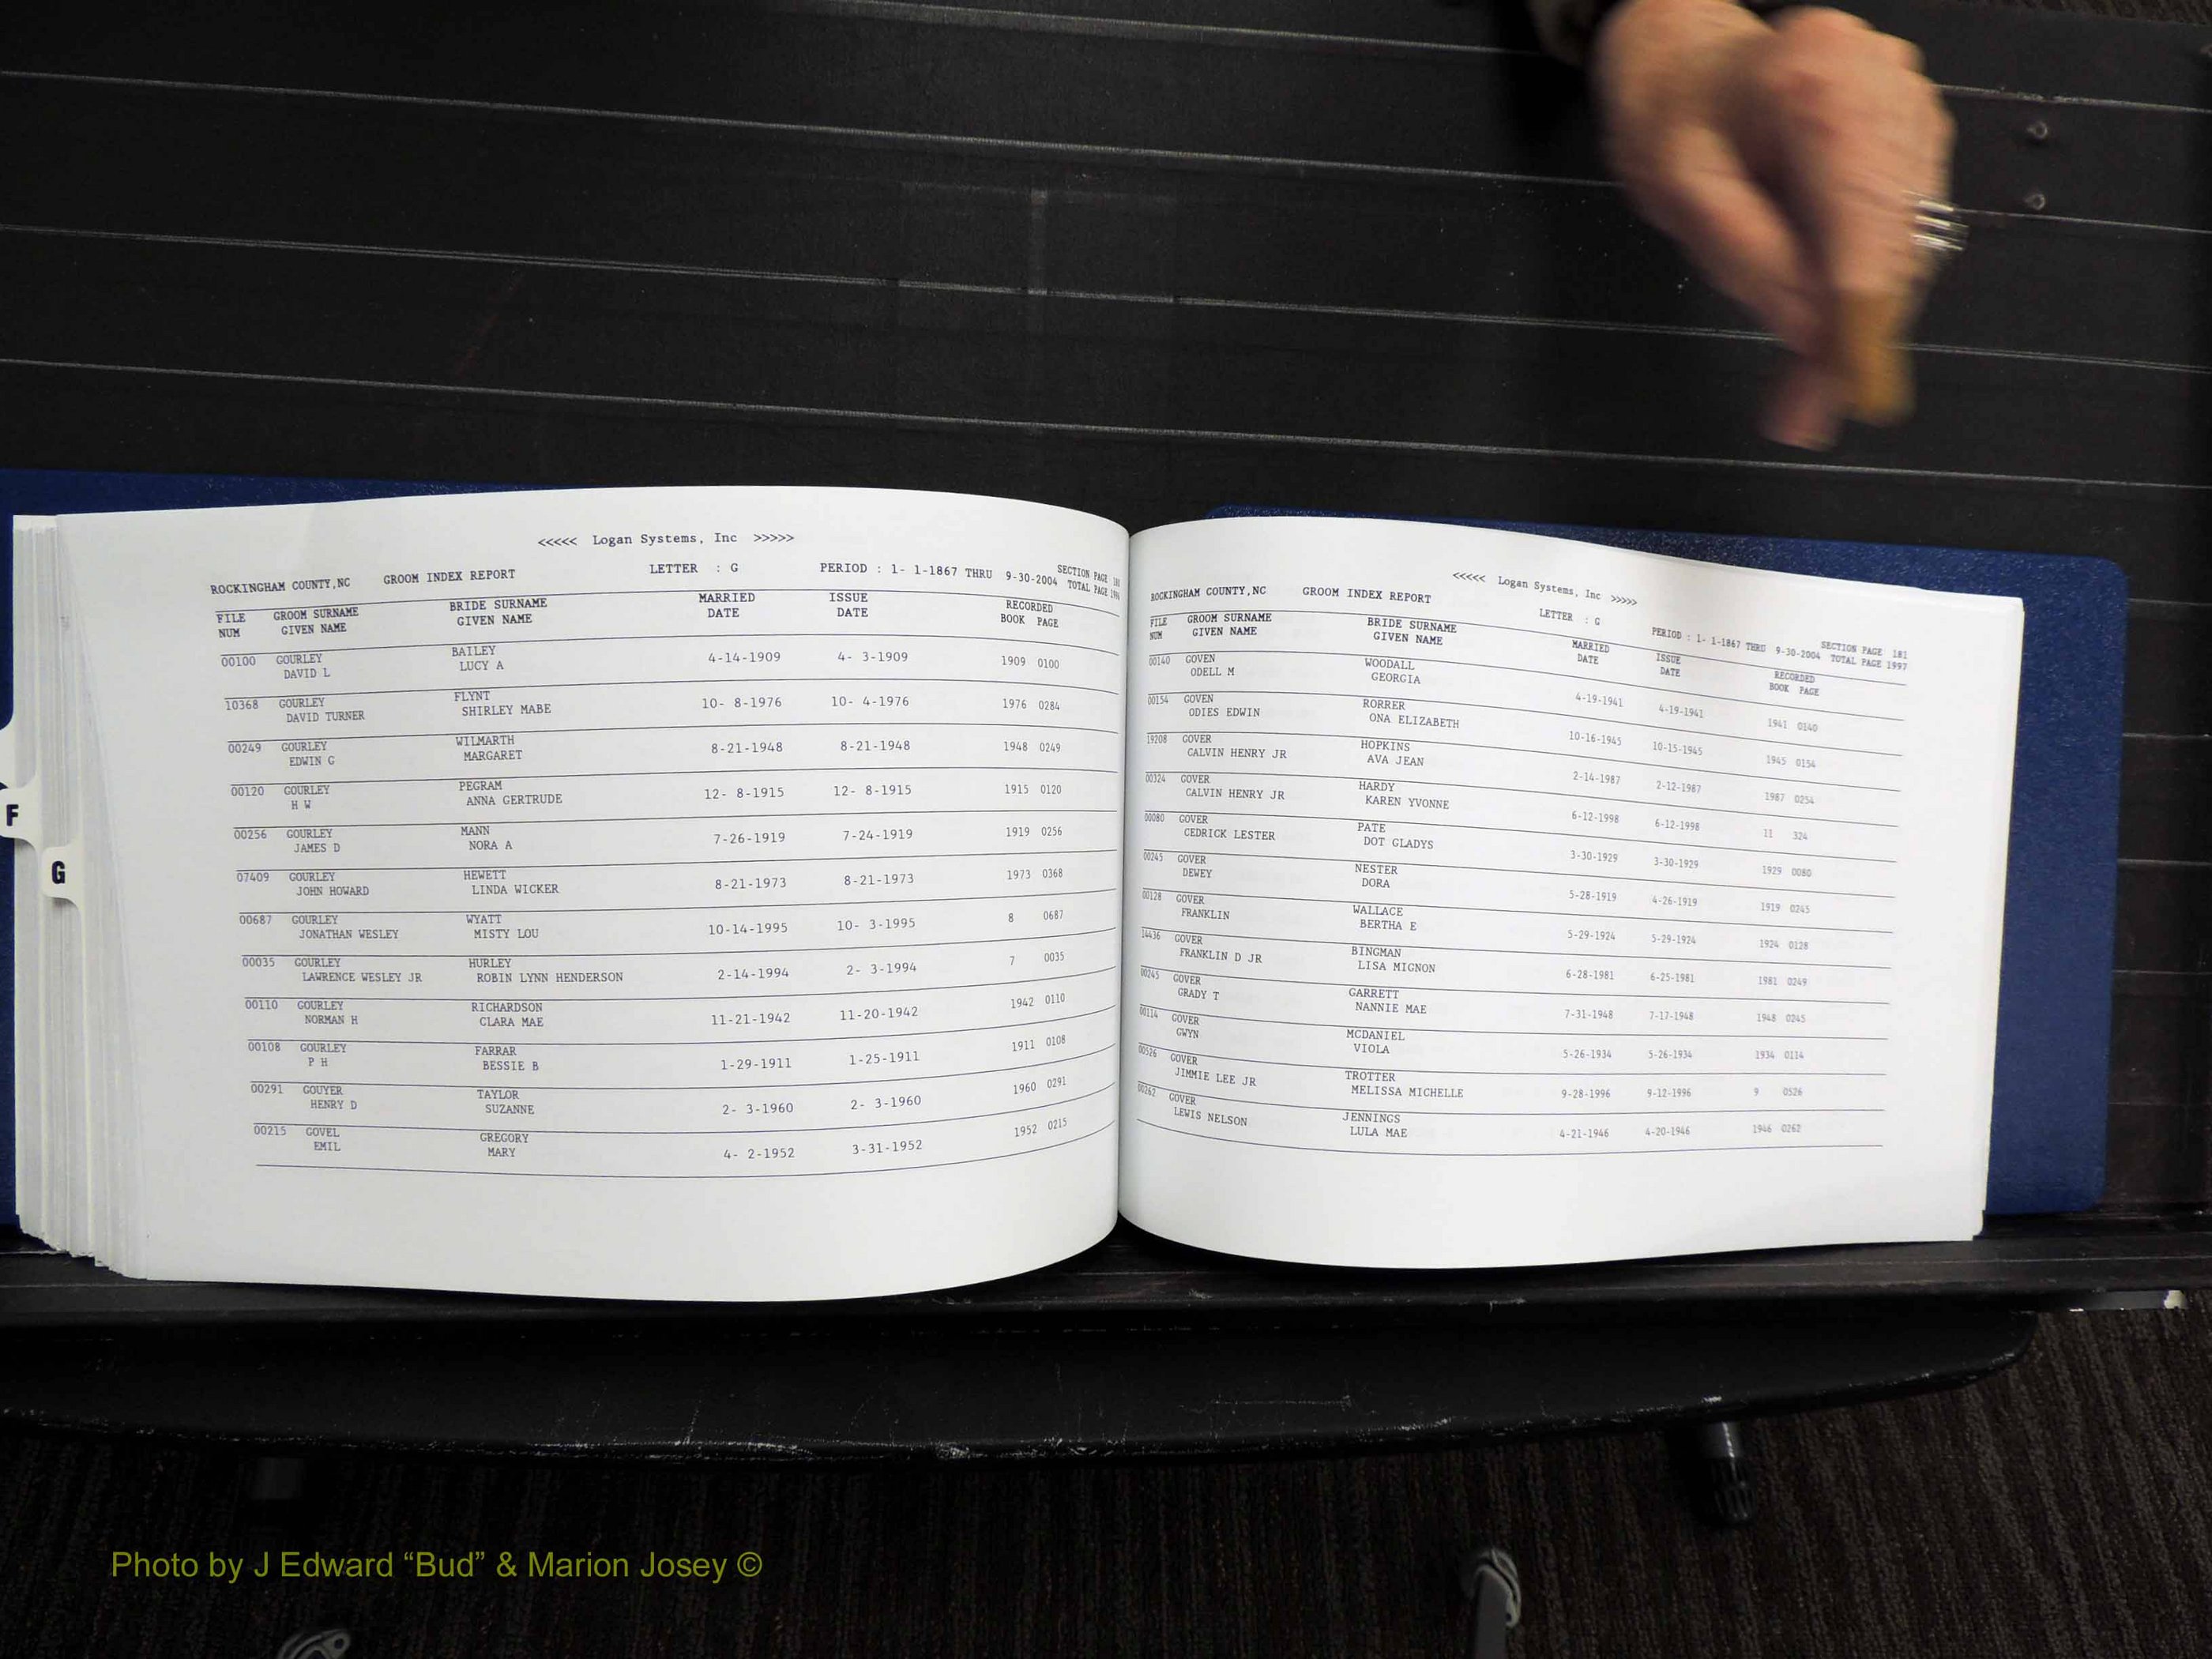 <<<<< Logan Systems, Inc >>>>>
ROCKINGHAM COUNTY,NC GROOM INDEX REPORT LETTER : G PERIOD : 1- 1-1867 THRU 9-30-2004 SECTION PAGE
TOTAL PAGE
FILE GROOM SURNAME BRIDE SURNAME MARRIED ISSUE RECORDED
NUM GIVEN NAME GIVEN NAME DATE DATE BOOK PAGE
00100 GOURLEY BAILEY 4-14-1909 4- 3-1909 1909 0100
DAVID L LUCY A
10368 GOURLEY FLYNT 10- 8-1976 10- 4-1976 1976 0284
DAVID TURNER SHIRLEY MABE
00249 GOURLEY WILMARTH 8-21-1948 8-21-1948 1948 0249
EDWIN G MARGARET
00120 GOURLEY PEGRAM 12- 8-1915 12- 8-1915 1915 0120
H W ANNA GERTRUDE
00256 GOURLEY MANN 7-26-1919 7-24-1919 1919 0256
JAMES D NORA A
07409 GOURLEY HEWETT 8-21-1973 8-21-1973 1973 0368
JOHN HOWARD LINDA WICKER
00687 GOURLEY WYATT 10-14-1995 10- 3-1995 8 0687
JONATHAN WESLEY MISTY LOU
00035 GOURLEY HURLEY 2-14-1994 2- 3-1994 7 0035
LAWRENCE WESLEY JR ROBIN LYNN HENDERSON
00110 GOURLEY RICHARDSON 11-21-1942 11-20-1942 1942 0110
NORMAN H CLARA MAE
00108 GOURLEY FARRAR 1-29-1911 1-25-1911 1911 0108
P H BESSIE B
00291 GOUYER TAYLOR 2- 3-1960 2- 3-1960 1960 0291
HENRY D SUZANNE
00215 GOVEL GREGORY 4- 2-1952 3-31-1952 1952 0215
EMIL MARY
F
G
<<<<< Logan Systems, Inc >>>>>
ROCKINGHAM COUNTY,NC GROOM INDEX REPORT LETTER : G PERIOD : 1- 1-1867 THRU 9-30-2004 SECTION PAGE 181
TOTAL PAGE 1997
FILE GROOM SURNAME BRIDE SURNAME MARRIED ISSUE RECORDED
NUM GIVEN NAME GIVEN NAME DATE DATE BOOK PAGE
00140 GOVEN WOODALL 4-19-1941 4-19-1941 1941 0140
ODELL M GEORGIA
00154 GOVEN RORRER 10-16-1945 10-15-1945 1945 0154
ODIES EDWIN ONA ELIZABETH
19208 GOVER HOPKINS 2-14-1987 2-12-1987 1987 0254
CALVIN HENRY JR AVA JEAN
00324 GOVER HARDY 6-12-1998 6-12-1998 11 324
CALVIN HENRY JR KAREN YVONNE
00080 GOVER PATE 3-30-1929 3-30-1929 1929 0080
CEDRICK LESTER DOT GLADYS
00245 GOVER NESTER 5-28-1919 4-26-1919 1919 0245
DEWEY DORA
00128 GOVER WALLACE 5-29-1924 5-29-1924 1924 0128
FRANKLIN BERTHA E
14436 GOVER BINGMAN 6-28-1981 6-25-1981 1981 0249
FRANKLIN D JR LISA MIGNON
00245 GOVER GARRETT 7-31-1948 7-17-1948 1948 0245
GRADY T NANNIE MAE
00114 GOVER MCDANIEL 5-26-1934 5-26-1934 1934 0114
GWYN VIOLA
00526 GOVER TROTTER 9-28-1996 9-12-1996 9 0526
JIMMIE LEE JR MELISSA MICHELLE
00262 GOVER JENNINGS 4-21-1946 4-20-1946 1946 0262
LEWIS NELSON LULA MAE
Photo by J Edward “Bud” & Marion Josey ©